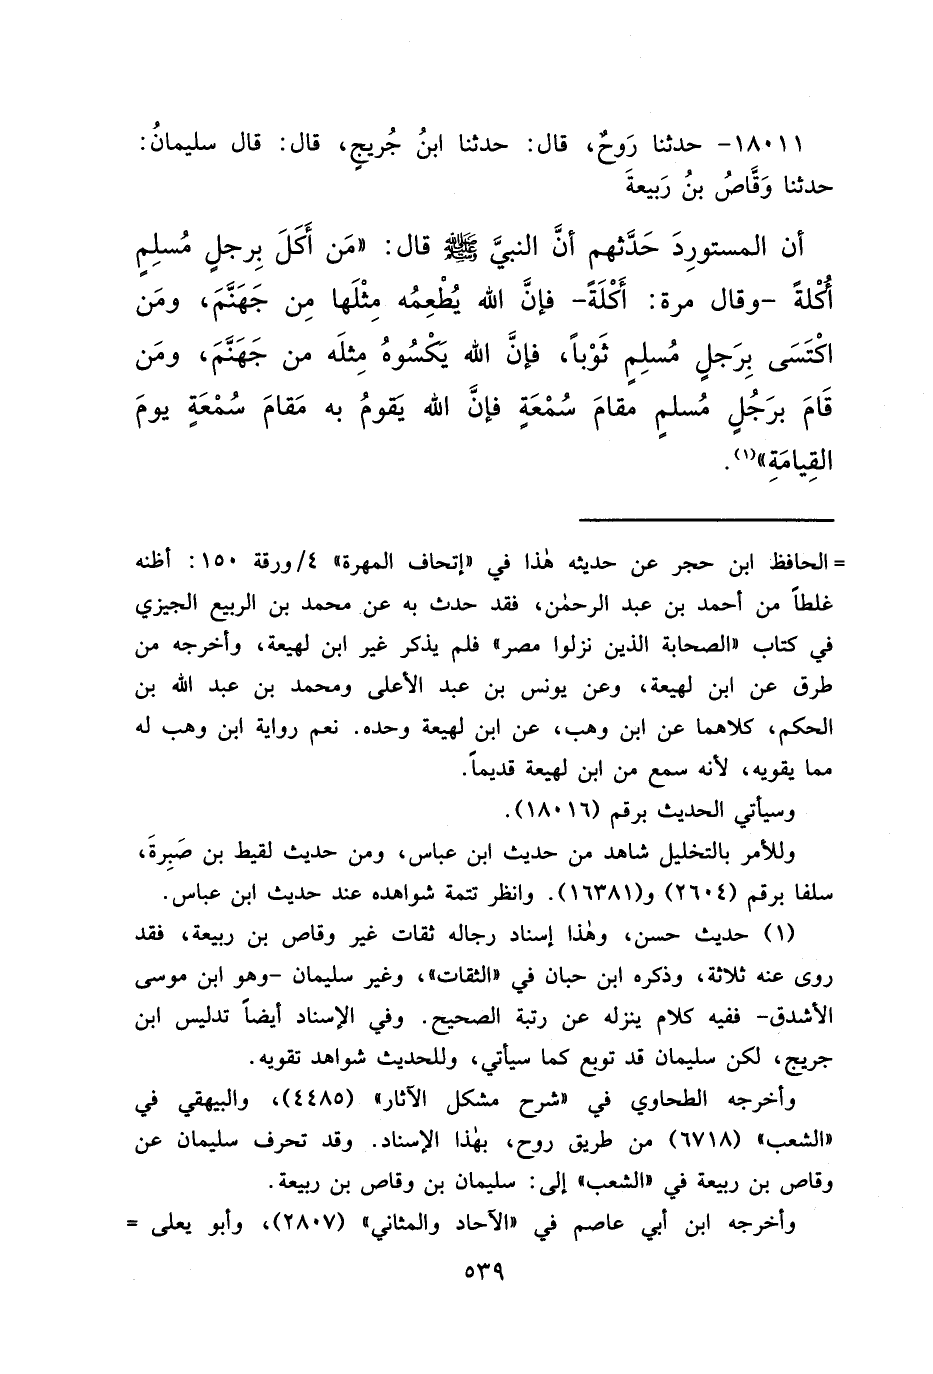 ١٨٠١١- حدثنا رَوحٌ، قال: حدثنا ابنُ جُريجٍ، قال: قال سليمانُ:
حدثنا وَقَّاصُ بنُ رَبيعةَ
أن المستوردَ حَدَّثهم أنَّ النبيَّ ﷺ قال: «مَن أَكَلَ بِرجلٍ مُسلِمٍ
أُكْلةً -وقال مرة: أَكْلَةً- فإنَّ الله يُطْعِمُه مِثْلَها مِن جَهَنَّمَ، ومَن
اكْتَسَى بِرَجلٍ مُسلِمٍ ثَوْباً، فإنَّ الله يَكْسُوهُ مِثلَه من جَهَنَّمَ، ومَن
قَامَ برَجُلٍ مُسلمٍ مقامَ سُمْعَةٍ فإنَّ الله يَقومُ به مَقامَ سُمْعَةٍ يومَ
القِيامَةِ»(١).
= الحافظ ابن حجر عن حديثه هٰذا في «إتحاف المهرة» ٤/ورقة ١٥٠: أظنه
غلطاً من أحمد بن عبد الرحمٰن، فقد حدث به عن محمد بن الربيع الجيزي
في كتاب «الصحابة الذين نزلوا مصر» فلم يذكر غير ابن لهيعة، وأخرجه من
طرق عن ابن لهيعة، وعن يونس بن عبد الأعلى ومحمد بن عبد الله بن
الحكم، كلاهما عن ابن وهب، عن ابن لهيعة وحده. نعم رواية ابن وهب له
مما يقويه، لأنه سمع من ابن لهيعة قديماً.
وسيأتي الحديث برقم (١٨٠١٦).
وللأمر بالتخليل شاهد من حديث ابن عباس، ومن حديث لقيط بن صَبِرةَ،
سلفا برقم (٢٦٠٤) و(١٦٣٨١). وانظر تتمة شواهده عند حديث ابن عباس.
(١) حديث حسن، وهٰذا إسناد رجاله ثقات غير وقاص بن ربيعة، فقد
روى عنه ثلاثة، وذكره ابن حبان في «الثقات»، وغير سليمان -وهو ابن موسى
الأشدق- ففيه كلام ينزله عن رتبة الصحيح. وفي الإسناد أيضاً تدليس ابن
جريج، لكن سليمان قد توبع كما سيأتي، وللحديث شواهد تقويه.
وأخرجه الطحاوي في «شرح مشكل الآثار» (٤٤٨٥)، والبيهقي في
«الشعب» (٦٧١٨) من طريق روح، بهٰذا الإسناد. وقد تحرف سليمان عن
وقاص بن ربيعة في «الشعب» إلى: سليمان بن وقاص بن ربيعة.
وأخرجه ابن أبي عاصم في «الآحاد والمثاني» (٢٨٠٧)، وأبو يعلى =
٥٣٩